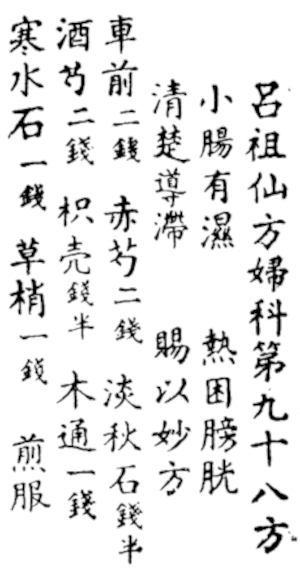 呂祖仙方婦科第九十八方
小腸有濕 熱困膀胱
清楚導滯 賜以妙方
車前二錢 赤芍二錢 淡秋石錢半
酒芍二錢 枳壳錢半 木通一錢
寒水石一錢 草梢一錢 煎服